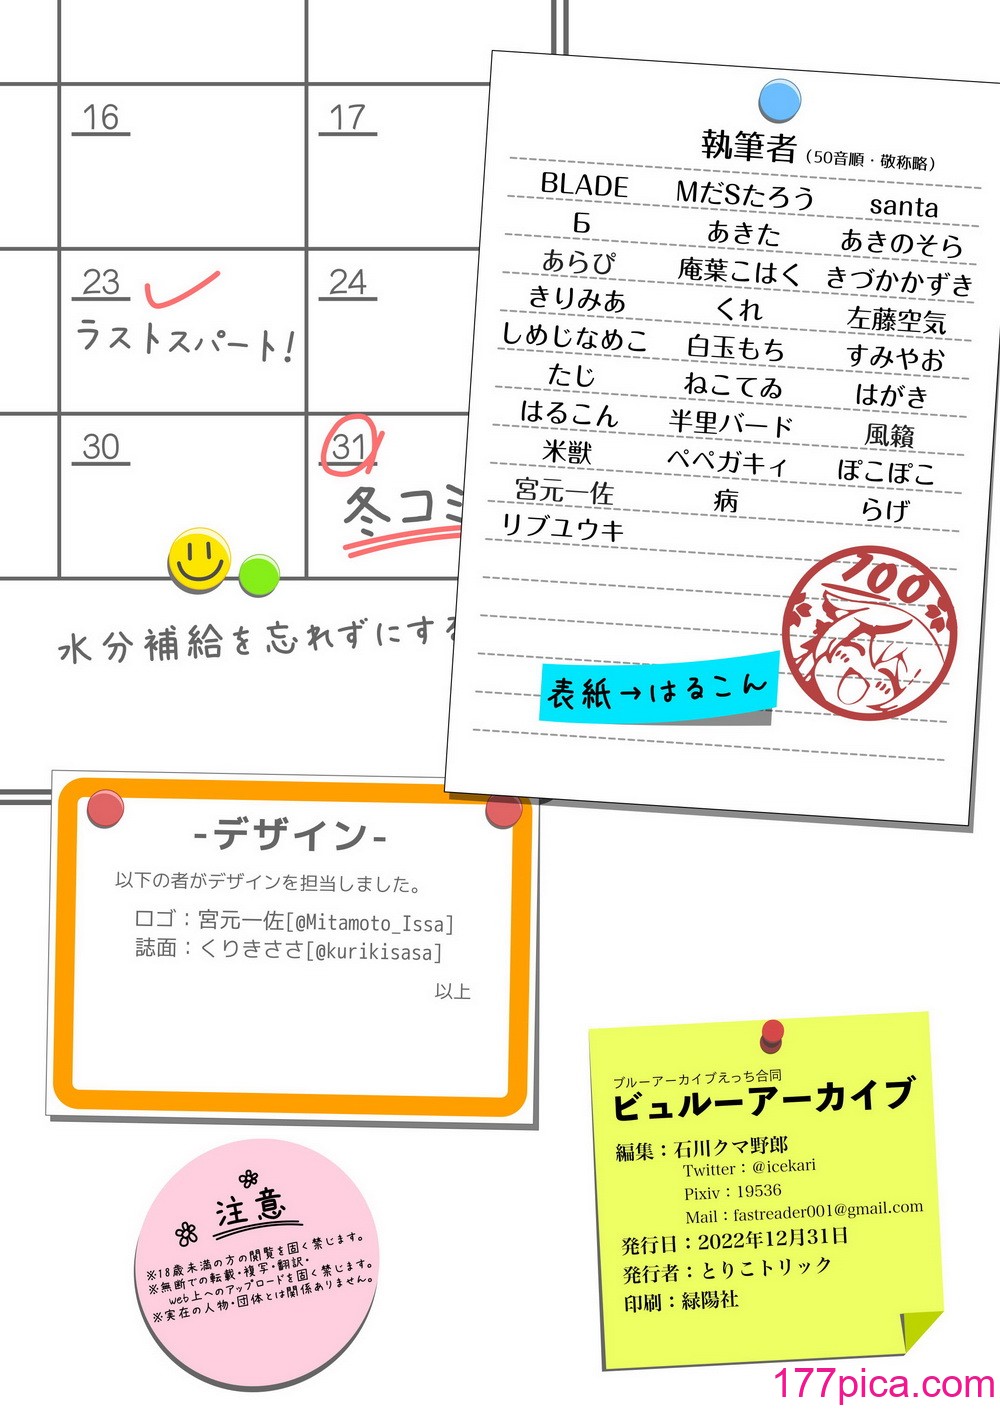 16
17
23
24
ラストスパート!
30
31
冬コミ
水分補給を忘れずにする
執筆者(50音順・敬称略)
BLADE MだSたろう santa
Б あきた あきのそら
あらぴ 庵葉こはく きづかかずき
きりみあ くれ 左藤空気
しめじなめこ 白玉もち すみやお
たじ ねこてゐ はがき
はるこん 半里バード 風籟
米獣 ペペガキィ ぽこぽこ
宮元一佐 病 らげ
リブユウキ
100
表紙→はるこん
-デザイン-
以下の者がデザインを担当しました。
ロゴ:宮元一佐[@Mitamoto_Issa]
誌面:くりきささ[@kurikisasa]
以上
注意
※18歳未満の方の閲覧を固く禁じます。
※無断での転載・複写・翻訳・
web上へのアップロードを固く禁じます。
※実在の人物・団体とは関係ありません。
ブルーアーカイブえっち合同
ビュルーアーカイブ
編集:石川クマ野郎
Twitter:@icekari
Pixiv:19536
Mail:fastreader001@gmail.com
発行日:2022年12月31日
発行者:とりこトリック
印刷:緑陽社
177pica.com